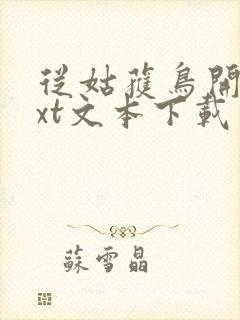 從姑獲鳥開
xt文本下載
蘇雪晶